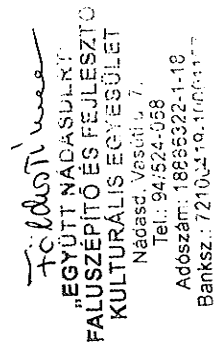 Földesi Imre
"EGYÜTT NÁDASDÉRT"
FALUSZÉPÍTŐ ÉS FEJLESZTŐ
KULTURÁLIS EGYESÜLET
Nádasd, Vasúti u. 7.
Tel.: 94/524-058
Adószám: 18885322-1-18
Banksz.: